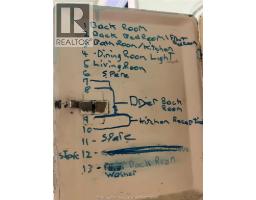 REALTOR
1 Back Room
2 Back BedRoom
3 BathRoom/Kitchen
4 - Dining Room Light
5 Living Room
6 SPARE
7
8
Back
Room
9 Kitchen
10
11 - SPARE
stove 12 -
13 - Back Room
Washer